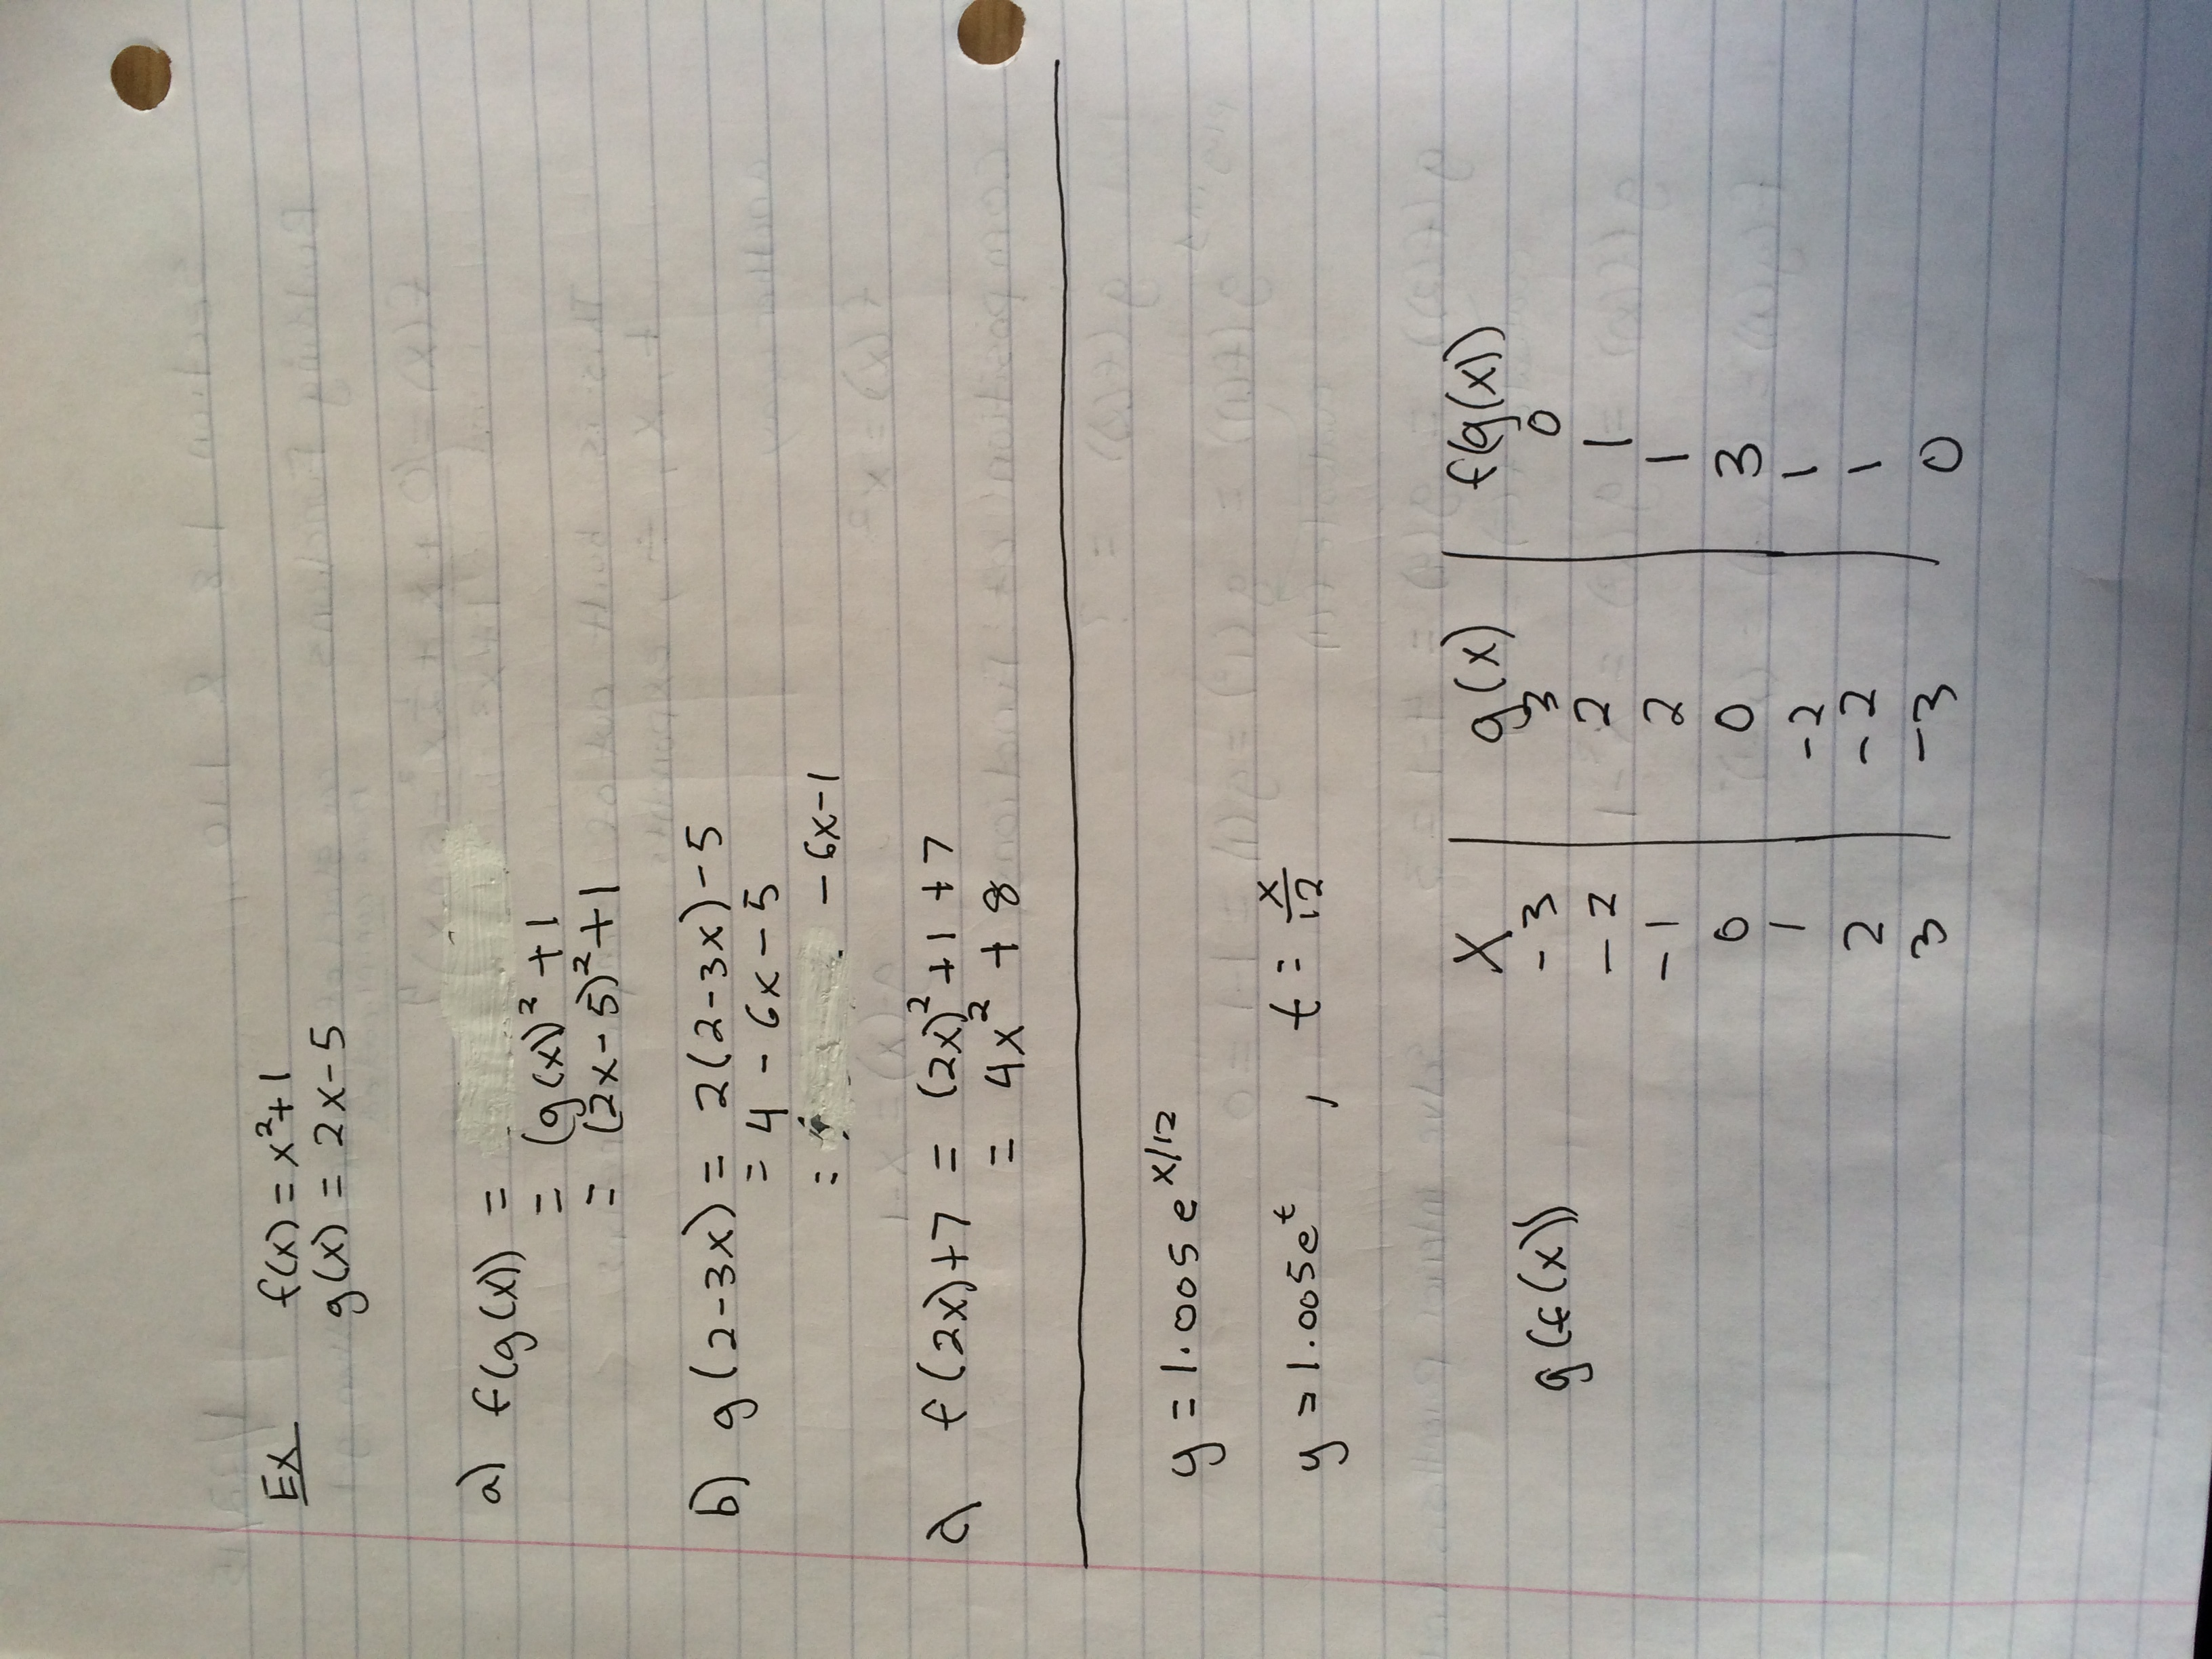 Ex f(x) = x²+1
g(x) = 2x-5
a) f(g(x)) =
= (g(x))² + 1
= (2x-5)² + 1
b) g(2-3x) = 2(2-3x)-5
= 4 - 6x - 5
= - 6x-1
c) f(2x)+7 = (2x)² + 1 + 7
= 4x² + 8
y = 1.005 e^x/12
y = 1.005e^t , t = x/12
x | g(x) | f(g(x))
-3 3 0
g(f(x)) -2 2 1
-1 2 1
0 0 3
1 -2 1
2 -2 1
3 -3 0